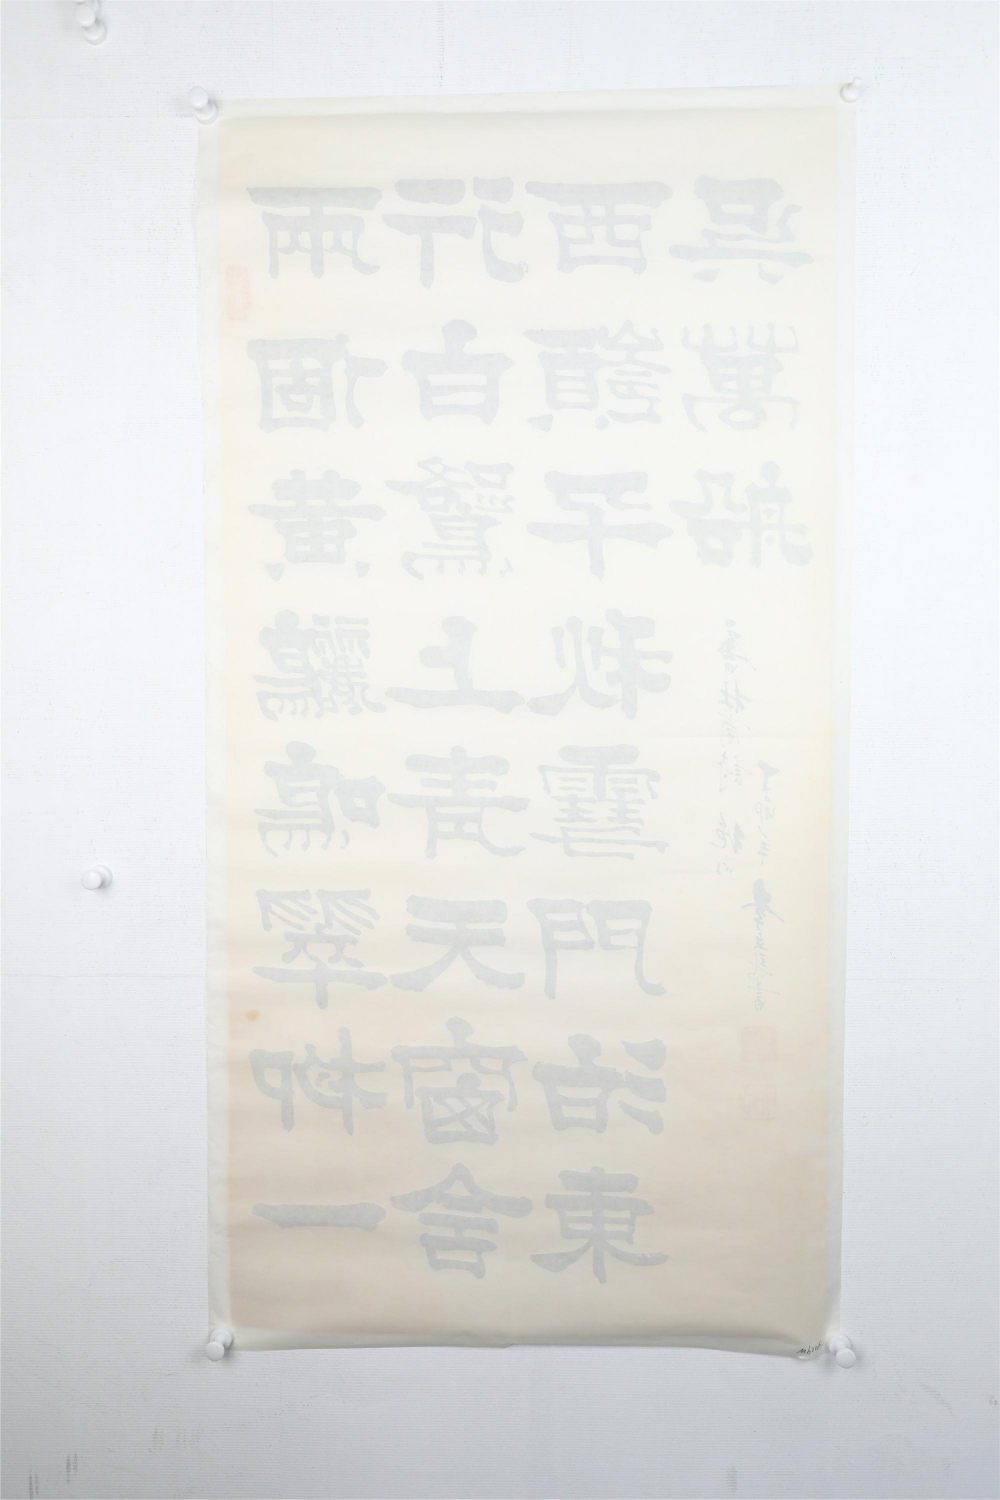 兩個黃鸝鳴翠柳一
行白鷺上青天窗含
西嶺千秋雪門泊東
吳萬船
丁卯